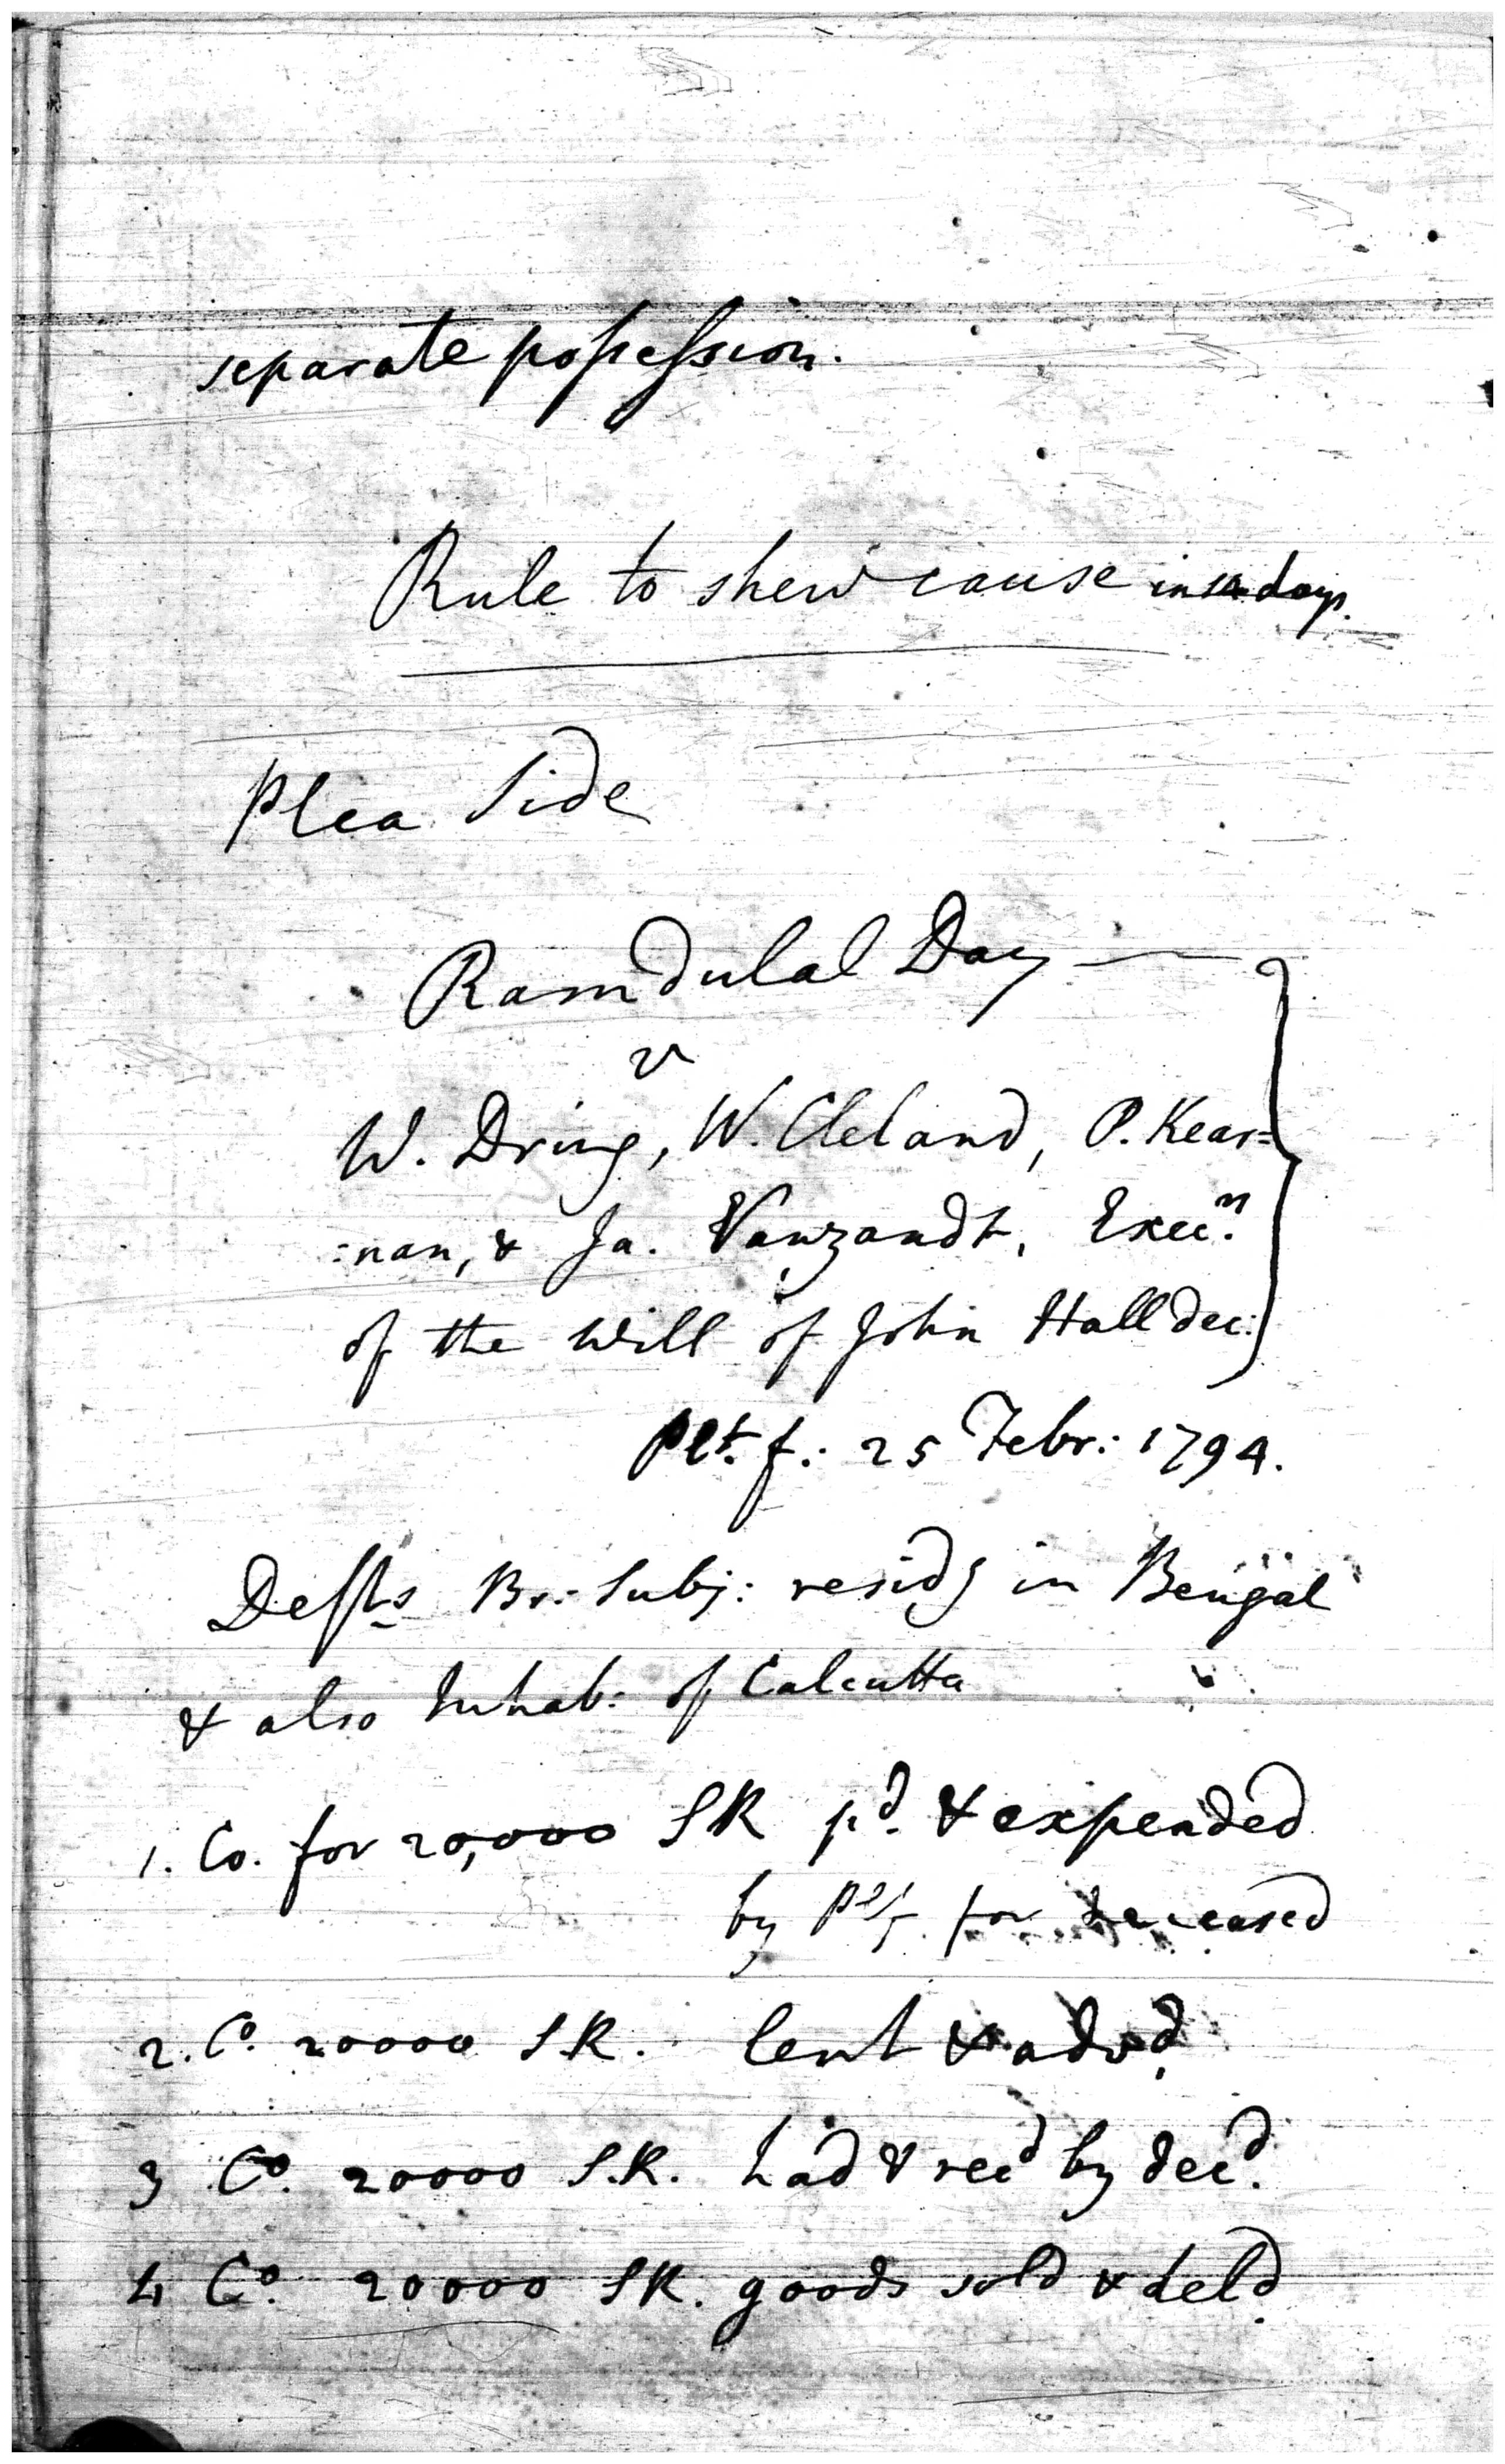 separate possession.
Rule to shew cause in days.
Plea Side
Ramdulal Day —
v
W. Dring, W. Cleland, P. Kear=
:nan, & Ja. Vanzandt, Exec.rs
of the Will of John Hall dec:
Plt. f: 25 Febr: 1794.
Defts Br: Subj: residg in Bengal
& also Inhab: of Calcutta
1. Co. for 20,000 SR pd. & expended
by Plf for deceased
2. Co 20000 SR. lent & advd.
3 Co. 20000 S.R. had & recd by decd.
4 Co. 20000 SR. goods sold & deld.